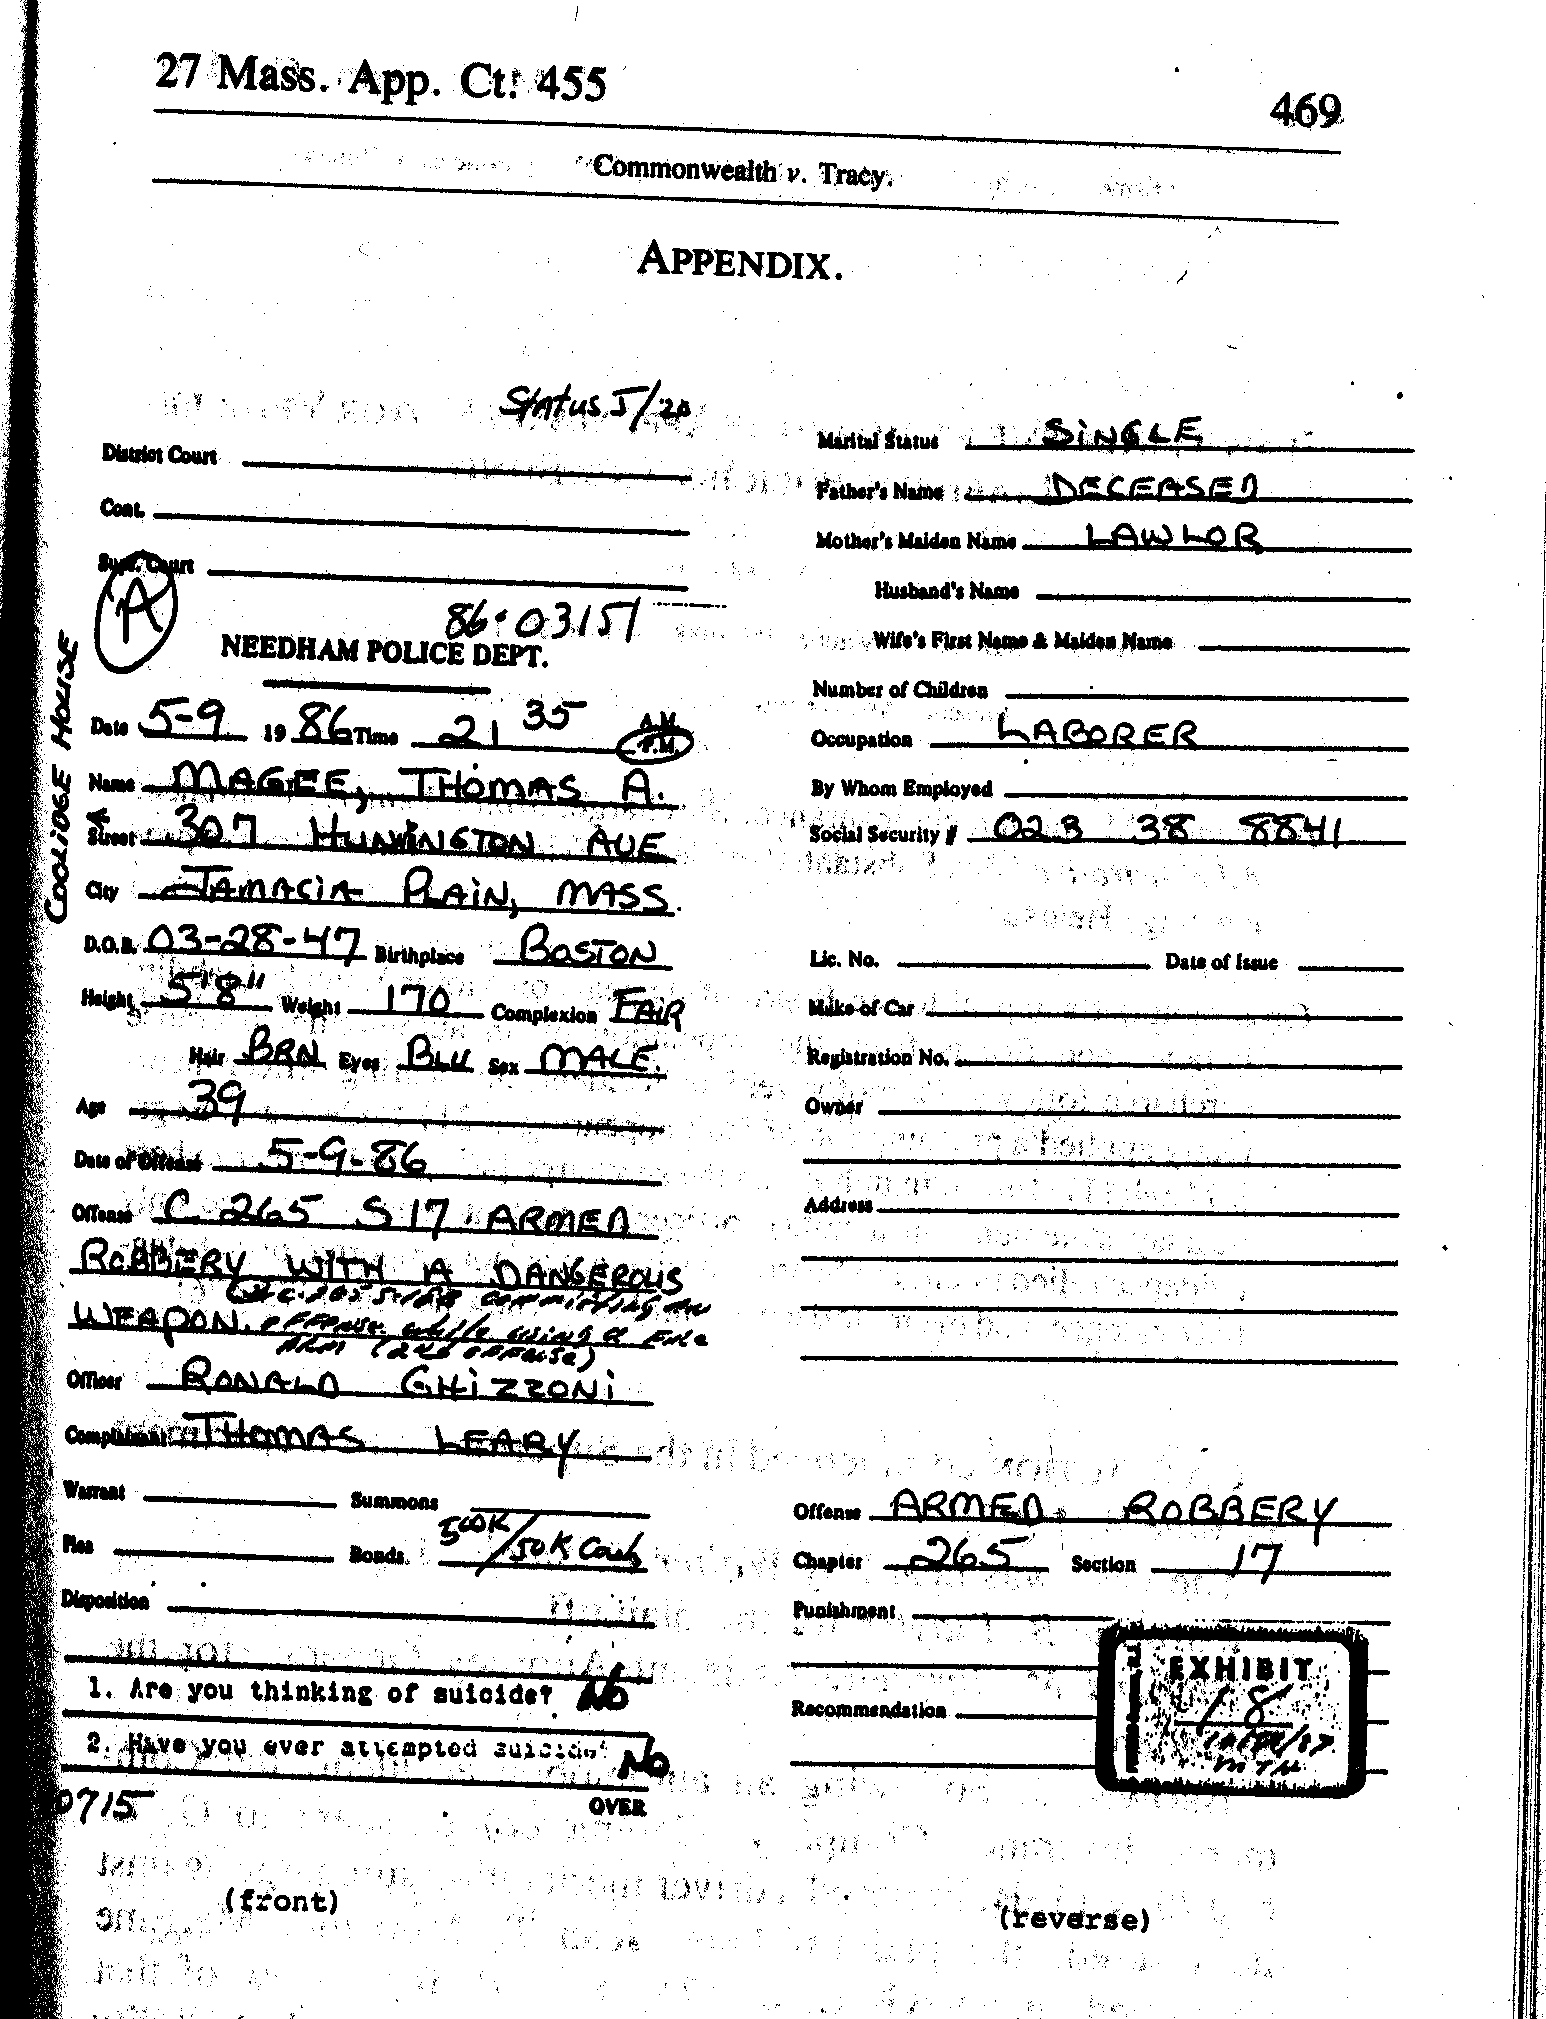 27 Mass. App. Ct. 455
469
Commonwealth v. Tracy.
APPENDIX.
STATUS 5/20
District Court
Cont.
Supr. Court
A
86-03151
NEEDHAM POLICE DEPT.
COOLIDGE HOUSE
Date 5-9 1986 Time 21 35 A.M. P.M.
Name MAGEE, THOMAS A.
Street 307 HUNINGTON AVE
City JAMACIA PLAIN, MASS.
D.O.B. 03-28-47 Birthplace BOSTON
Height 5'8" Weight 170 Complexion FAIR
Hair BRN Eyes BLU Sex MALE.
Age 39
Date of Offense 5-9-86
Offense C 265 S 17 ARMED
ROBBERY WITH A DANGEROUS
committing an
WEAPON. offense while using a Fire
ARM (2nd offense)
Officer RONALD GHIZZONI
Complainant THOMAS LEARY
Warrant Summons
Plea Bonds. 500K/50K Cash
Disposition
1. Are you thinking of suicide? No
2. Have you ever attempted suicide? No
0715
OVER
(front)
Marital Status SINGLE
Father's Name DECEASED
Mother's Maiden Name LAWLOR
Husband's Name
Wife's First Name & Maiden Name
Number of Children
Occupation LABORER
By Whom Employed
Social Security # 023 38 8841
Lic. No. Date of Issue
Make of Car
Registration No.
Owner
Address
Offense ARMED ROBBERY
Chapter 265 Section 17
Punishment
Recommendation
EXHIBIT
18
MTH
(reverse)